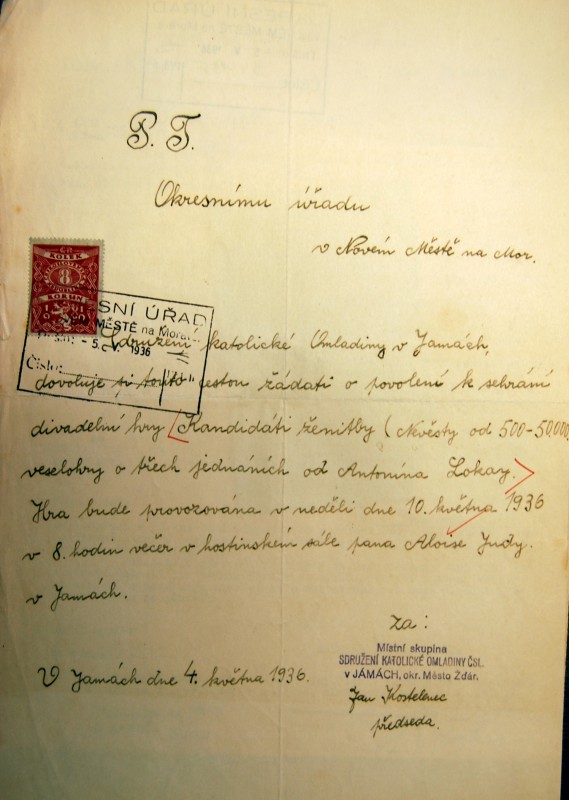 P. T.
Okresnímu úřadu
v Novém Městě na Mor.
KOLEK
8
KORUN
1931
SNÍ ÚŘAD
MĚSTĚ na Moravě
- 5. V. 1936
Číslo:
Sdružení katolické Omladiny v Jamách,
dovoluje si touto cestou žádati o povolení k sehrání
divadelní hry (Kandidáti ženitby (Nevěsty od 500-50,000)
veselohry o třech jednáních od Antonína Lokay.
Hra bude provozována v neděli dne 10. května 1936
v 8. hodin večer v hostinském sále pana Aloise Judy.
v Jamách.
za:
Místní skupina
SDRUŽENÍ KATOLICKÉ OMLADINY ČSL.
v JÁMÁCH, okr. Město Žďár.
V Jamách dne 4. května 1936.
Jan Kostelenec
předseda.